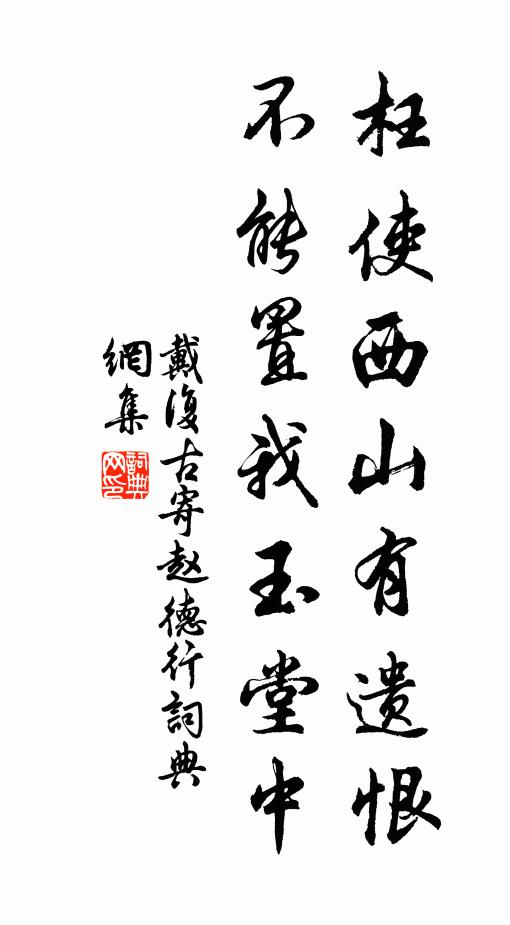 枉使西山有遗恨
不能置我玉堂中
戴復古寄赵德行詞典
網集
詞典网印